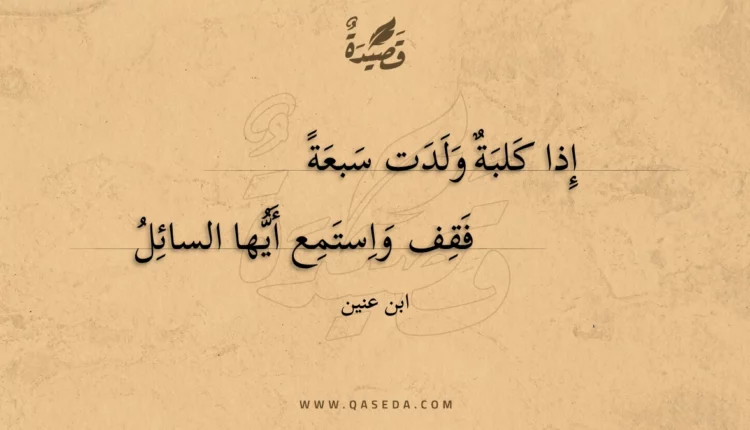 قَصِيدَةٌ
إِذا كَلبَةٌ وَلَدَت سَبعَةً
فَقِف وَاِستَمِع أَيُّها السائِلُ
ابن عنين
WWW.QASEDA.COM